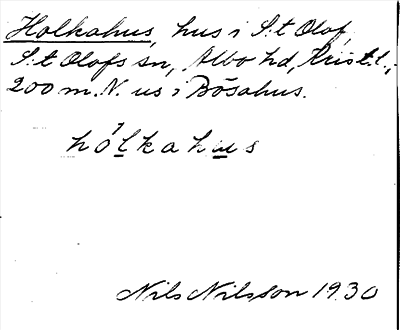 Holkahus, hus i S:t Olof,
S:t Olofs sn, Albo hd, Krist.l.;
200 m. N. us i Bösahus.
hólkahus
Nils Nilsson 1930